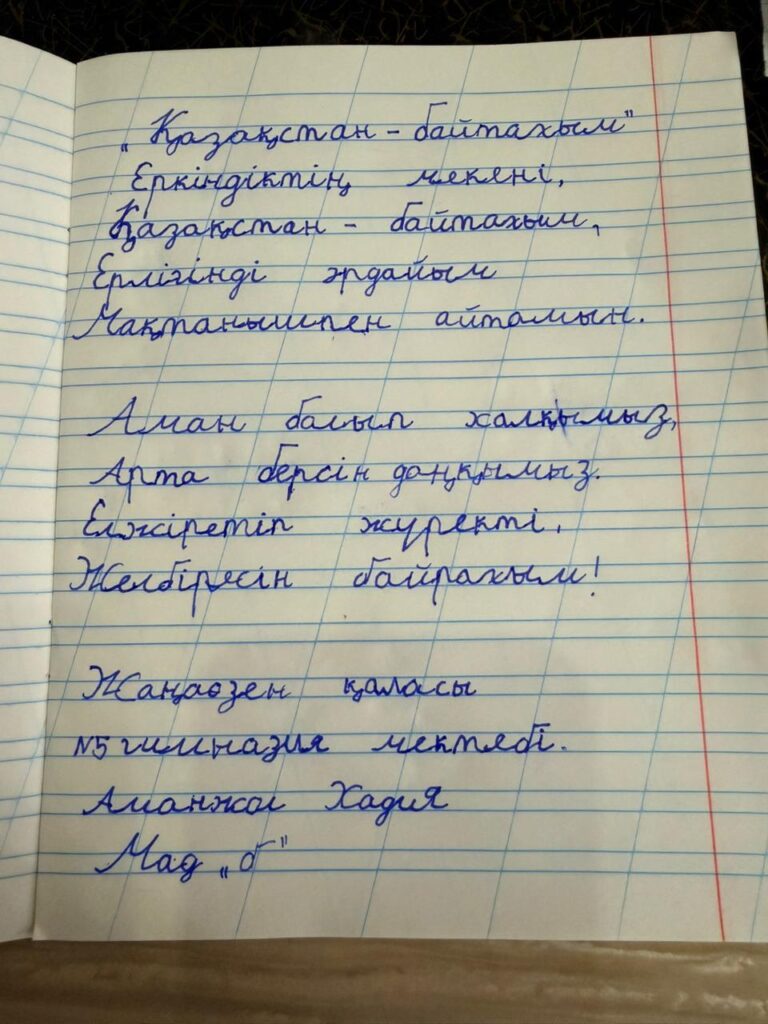 „Қазақстан – байтахым"
Еркіндіктің мекені,
Қазақстан – байтахым,
Ерлігінді әрдайым
Мақтанышпен айтамын.
Аман балып халқымыз,
Арта берсін даңқымыз.
Елжіретіп жүректі,
Желбіресін байрахым!
Жаңаөзен қаласы
№5 гимназия мектебі.
Аманжол Хадия
Мад „б"